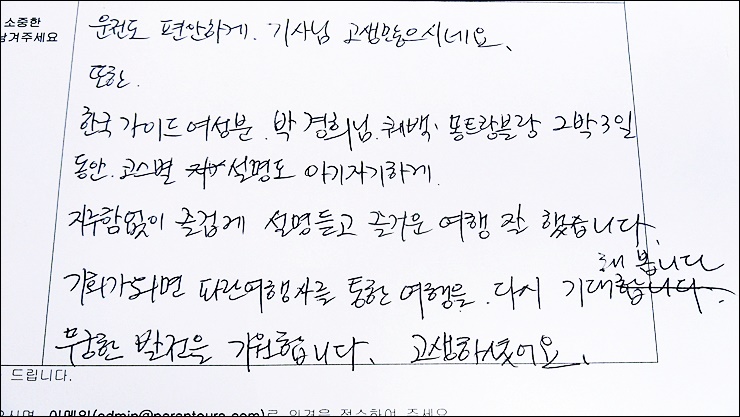 소중한
남겨주세요
운전도 편안하게. 기사님 고생많으시네요.
또한.
한국 가이드 여성분. 박경희님. 퀘백. 몽트랑블랑 2박3일
동안. 코스별 설명도 아기자기하게.
지루함없이 즐겁게 설명듣고 즐거운 여행 잘 했습니다.
해 봅니다
기회가되면 파란여행사를 통한 여행을. 다시 기대합니다.
무궁한 발전을 기원합니다. 고생하셨어요.
드립니다.
이메일(admin@parantours.com)로 의견을 접수하여 주세요